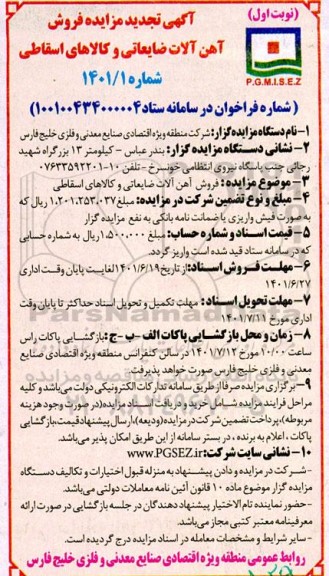 (نوبت اول)
آگهی تجدید مزایده فروش
آهن آلات ضایعاتی و کالاهای اسقاطی
شماره ۱۴۰۱/۱
P.G.M.I.S.E.Z
(شماره فراخوان در سامانه ستاد ۱۰۰۱۰۰۴۳۴۰۰۰۰۰۴)
۱-نام دستگاه مزایده گزار: شرکت منطقه ویژه اقتصادی صنایع معدنی و فلزی خلیج فارس
۲- نشانی دستگاه مزایده گزار: بندر عباس - کیلومتر ۱۳ بزرگراه شهید
رجائی جنب باسگاه نیروی انتظامی خونسرخ - تلفن ۱۰-۰۷۶۳۳۵۹۲۲۰۱
۳- موضوع مزایده: فروش آهن آلات ضایعاتی و کالاهای اسقاطی
۴- مبلغ و نوع تضمین شرکت در مزایده: مبلغ ۱،۲۰۱،۲۵۳،۰۳۷ ریال که
به صورت فیش واریزی یا ضمانت نامه بانکی به نفع مزایده گزار
۵- قیمت اسناد و شماره حساب: مبلغ ۱،۵۰۰،۰۰۰ ریال به شماره حسابی
که در سامانه ستاد قید شده است واریز گردد.
۶- مهلت فروش اسناد: از تاریخ ۱۴۰۱/۶/۱۹ لغایت پایان وقت اداری
۱۴۰۱/۶/۲۷
۷- مهلت تحویل اسناد: مهلت تکمیل و تحویل اسناد حداکثر تا پایان وقت
اداری مورخ ۱۴۰۱/۷/۱۱
۸- زمان و محل بازگشایی پاکات الف - ب - ج: بازگشایی پاکات راس
ساعت ۱۰/۰۰ مورخ ۱۴۰۱/۷/۱۲ در سالن کنفرانس منطقه ویژه اقتصادی صنایع
معدنی و فلزی خلیج فارس صورت خواهد پذیرفت.
۹- برگزاری مزایده صرفا از طریق سامانه تدارکات الکترونیکی دولت می‌باشد و کلیه
مراحل فرایند مزایده شامل خرید و دریافت اسناد مزایده (در صورت وجود هزینه
مربوطه)، پرداخت تضمین شرکت در مزایده (ودیعه)، ارسال پیشنهاد قیمت، بازگشایی
پاکات، اعلام به برنده، در بستر سامانه از این طریق امکان پذیر می‌باشد.
۱۰- نشانی سایت شرکت: www.PGSEZ.ir
-شرکت در مزایده و دادن پیشنهاد به منزله قبول اختیارات و تکالیف دستگاه
مزایده گزار موضوع ماده ۱۰ قانون آئین نامه معاملات دولتی می‌باشد.
-حضور نماینده تام الاختیار پیشنهاد دهندگان در جلسه بازگشایی در صورت ارائه
معرفینامه معتبر کتبی مجاز می‌باشد.
-سایر شرایط و مشخصات معامله در اسناد مزایده درج گردیده است.
روابط عمومی منطقه ویژه اقتصادی صنایع معدنی و فلزی خلیج فارس